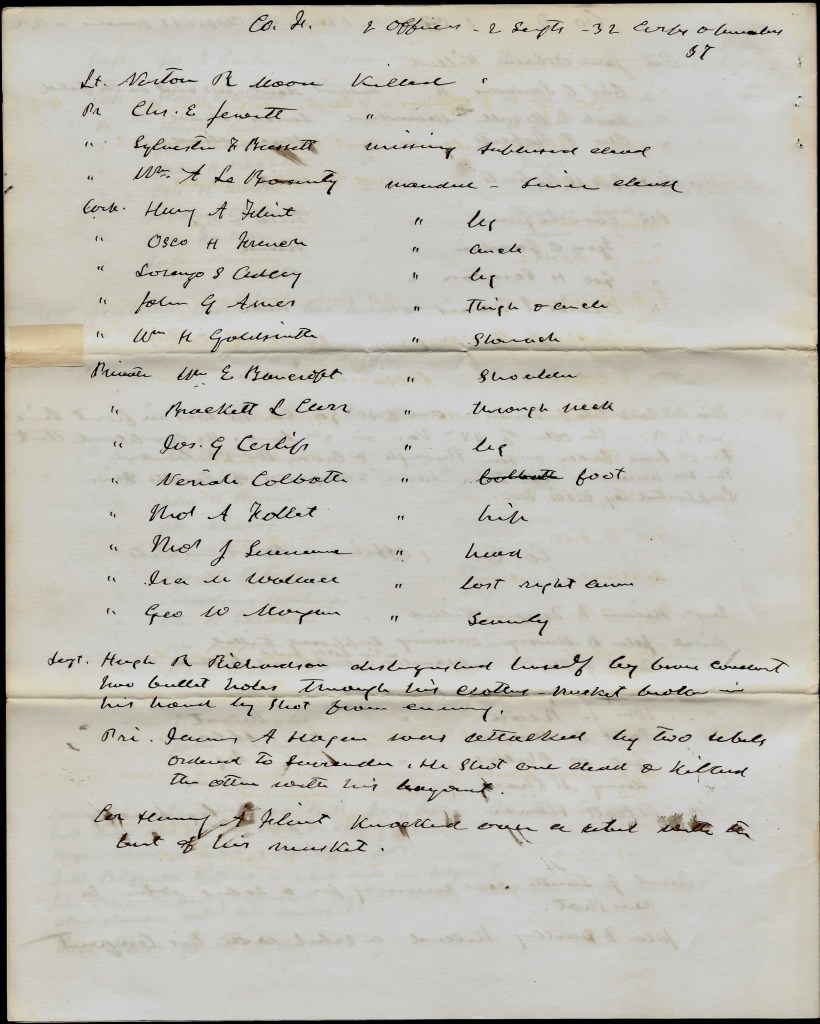 Co. H. 2 Officers - 2 Sergts - 32 Corps & privates
37
Lt. Virtem R Moore Killed "
Pr Chs. E Jewett "
" Sylvester F Bassett missing supposed dead
" Wm. A La Bounty wounded - since dead
Cork. Henry A Flint " leg
" Osco H French " ancle
" Lorenzo S Adley " leg
" John G Ames " thigh & ancle
" Wm H Goldsmith " Stomach
Private Wm E Bancroft " Shoulder
" Brackett L Carr " through neck
" Jos. G Cerlifs " leg
" Neriah Colbath " foot
" Thos A Follet " hip
" Thos J " head
" Ira M Wallace " lost right arm
" Geo W Morgan " Severely
Sergt. Hugh R Richardson distinguished himself by brave conduct
two bullet holes through his clothes - musket broken in
his hand by shot from enemy.
Pri. James A Hagen was attacked by two rebels
ordered to surrender, He shot one dead & killed
the other with his bayonet.
Cor Henry A Flint Knocked over a rebel with the
but of his musket.